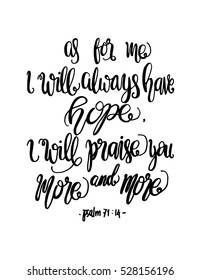 as for me
i will always have
hope.
i will praise you
more and more
- psalm 71:14 -
shutterstock.com · 528156196